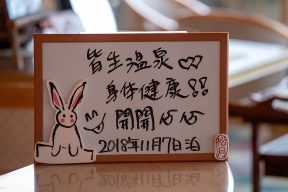 皆生温泉
身体健康!!
開開心心
2018年11月7日泊